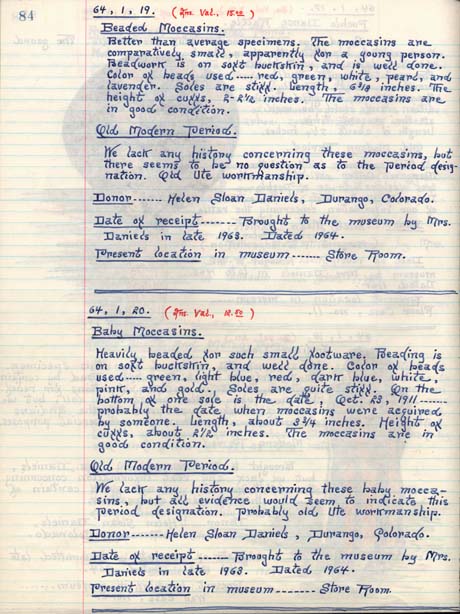 84
64, 1, 19. (Ins. Val., 15.00)
Beaded Moccasins.
Better than average specimens. The moccasins are
comparatively small, apparently for a young person.
Beadwork is on soft buckskin, and is well done.
Color of beads used---- red, green, white, pearl, and
lavender. Soles are stiff. Length, 6 3/8 inches. The
height of cuffs, 2-2 1/2 inches. The moccasins are
in good condition.
Old Modern Period.
We lack any history concerning these moccasins, but
there seems to be no question as to the period desig-
nation. Old Ute workmanship.
Donor------- Helen Sloan Daniels, Durango, Colorado.
Date of receipt------- Brought to the museum by Mrs.
Daniels in late 1963. Dated 1964.
Present location in museum------- Store Room.
64, 1, 20. (Ins. Val., 12.50)
Baby Moccasins.
Heavily beaded for such small footware. Beading is
on soft buckskin, and well done. Color of beads
used---- green, light blue, red, dark blue, white,
pink, and gold. Soles are quite stiff. On the
bottom of one sole is the date, Oct. 23, 1911-------
probably the date when moccasins were acquired
by someone. Length, about 3 3/4 inches. Height of
cuffs, about 2 1/2 inches. The moccasins are in
good condition.
Old Modern Period.
We lack any history concerning these baby mocca-
sins, but all evidence would seem to indicate this
period designation. Probably old Ute workmanship.
Donor------- Helen Sloan Daniels, Durango, Colorado.
Date of receipt------- Brought to the museum by Mrs.
Daniels in late 1963. Dated 1964.
Present location in museum------- Store Room.